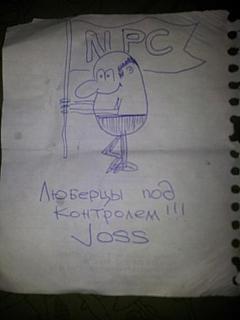 NPC
Люберцы под
контролем!!!
Joss